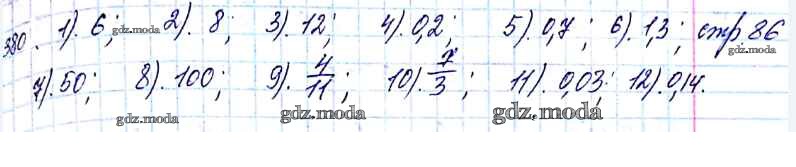 380. 1). 6; 2). 8; 3). 12; 4). 0,2; 5). 0,7; 6). 1,3; стр 86
gdz.moda gdz.moda gdz.moda
7). 50; 8). 100; 9). 4/11; 10). 7/3; 11). 0,03; 12). 0,14.
gdz.moda gdz.moda gdz.moda